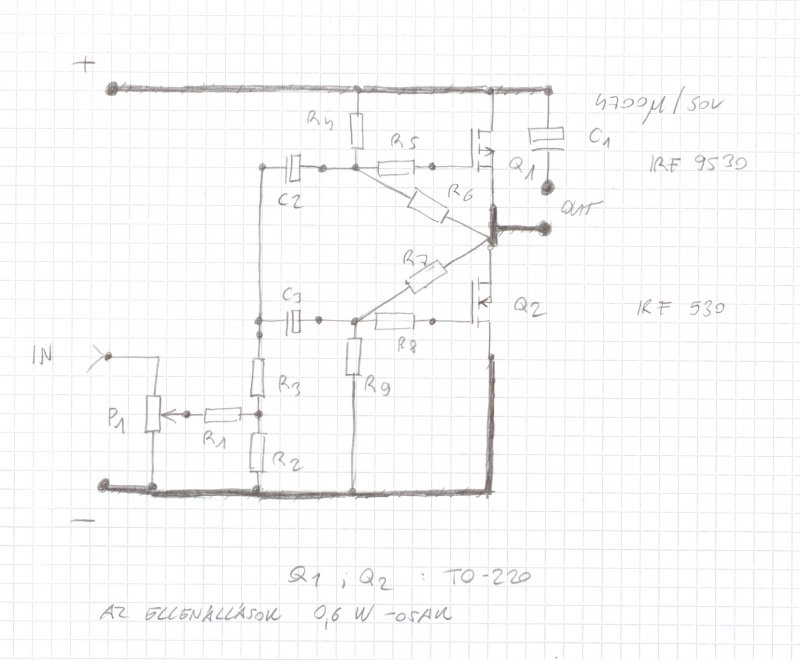 +
4700µ/50V
R4
R5
C1
Q1
IRF 9530
C2
R6
OUT
R7
C3
Q2
IRF 530
R8
IN
R3
R9
P1
R1
R2
—
Q1 ; Q2 : TO-220
AZ ELLENÁLLÁSOK 0,6 W-OSAK